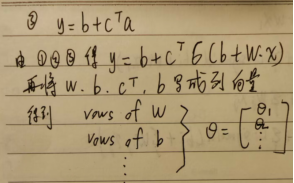 ② y=b+cᵀa
由①②③得 y=b+cᵀ6(b+W·x)
再将 W.b.cᵀ.b 写成列向量
得到 rows of W
rows of b
⋮
θ=[θ₁ θ₂ ⋮]